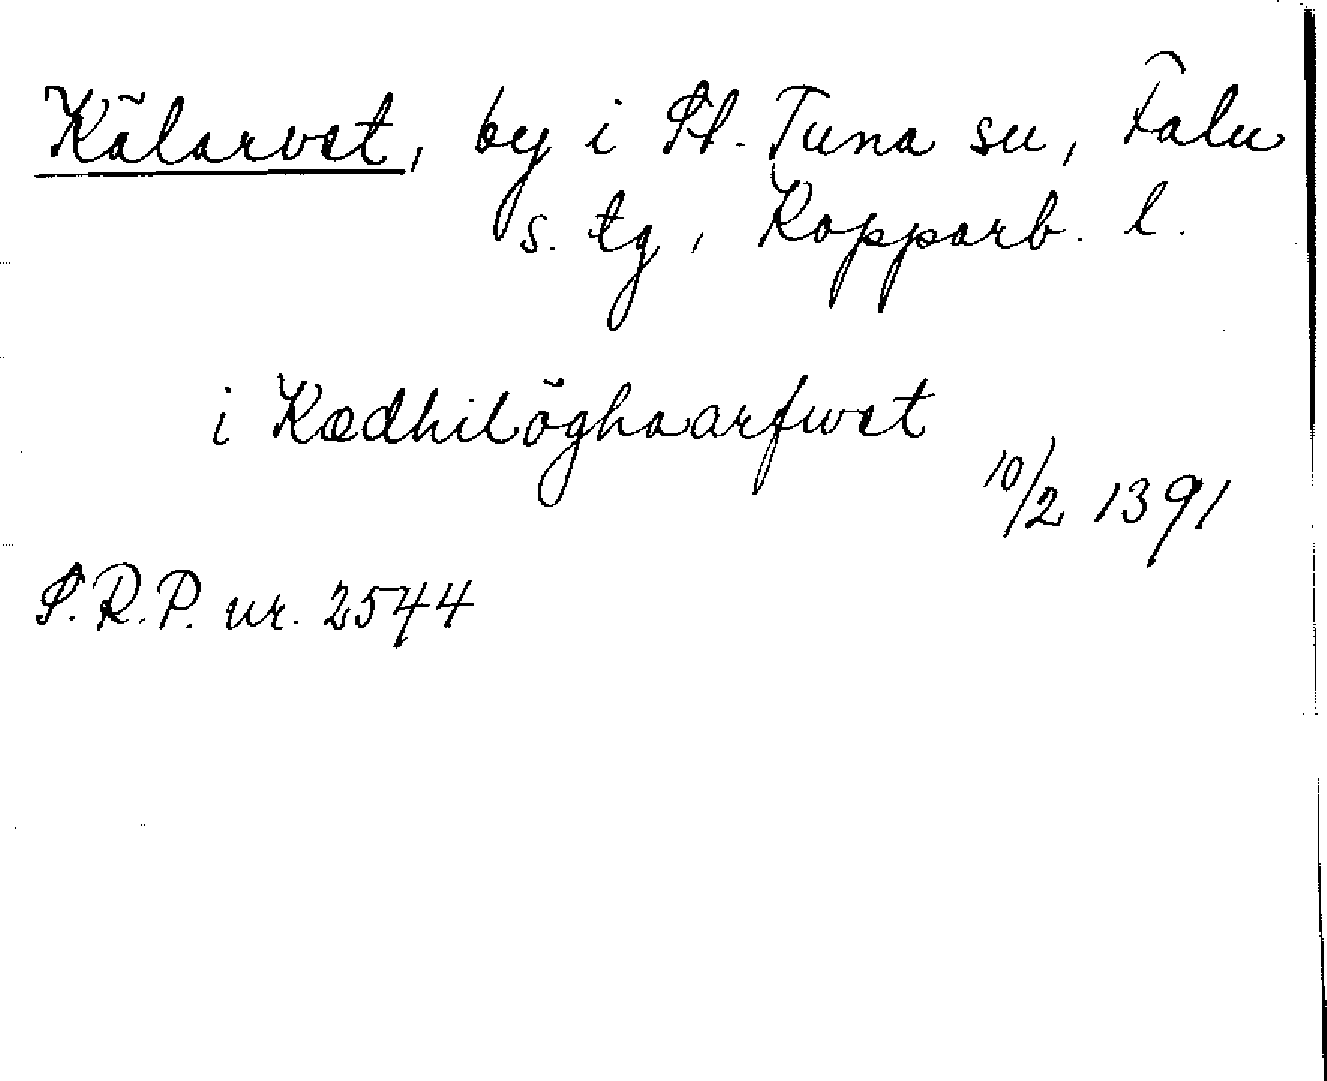 Kälarvet, by i St. Tuna sn, Falu
s. tg, Kopparb. l.
i Kædhilöghaarfwet
10/2 1391
S.R.P. nr. 2544